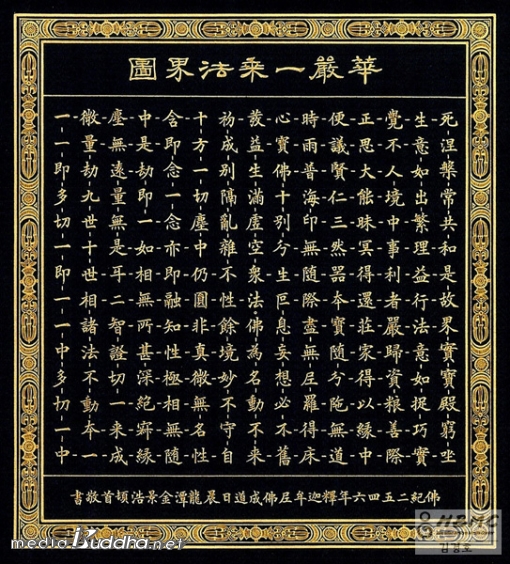 華嚴一乘法界圖
死涅槃常共和是故界實寶殿窮坐
生意如出繁理益行法意如捉巧實
覺不人境中事利者嚴歸資糧善際
正思大能昧冥得還莊家得以緣中
便議賢仁三然器本寶隨分陀無道
時雨普海印無隨際盡無尼羅得床
心寶佛十別分生叵息妄想必不舊
發益生滿虛空衆法佛為名動不來
初成別隔亂雜不性餘境妙不守自
十方一切塵中仍圓非真微無名性
含即念一念亦即融知性極相無隨
中是劫即一如相無所甚深絕寂緣
塵無遠量無是耳二智證切一來成
微量劫九世十世相諸法不動本一
一一即多切一即一一中多切一中
佛紀二五四六年釋迦牟尼佛成道日辰龍潭金景浩頓首敬書
media Buddha.net
HBMC